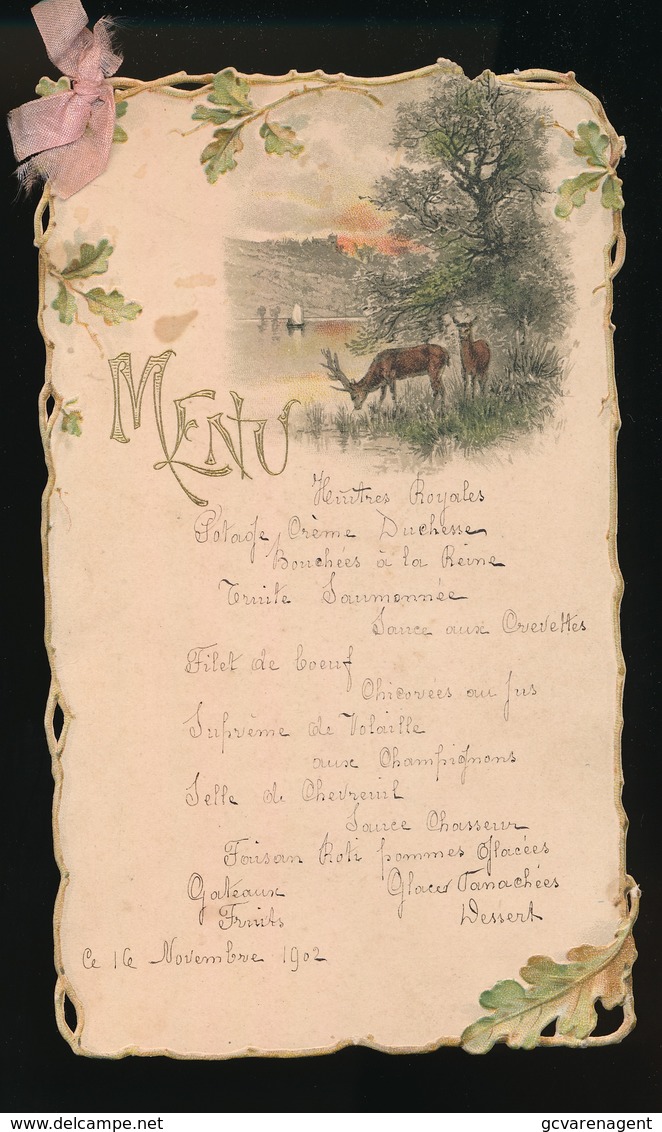 Menu
Huîtres Royales
Potage Crème Duchesse
Bouchées à la Reine
Truite Saumonnée
Sauce aux Crevettes
Filet de boeuf
Chicorées au jus
Suprème de Volaille
aux Champignons
Selle de Chevreuil
Sauce Chasseur
Faisan Roti pommes Glacées
Gateaux Glaces Panachées
Fruits Dessert
Ce 16 Novembre 1902
delcampe.net
gcvarenagent